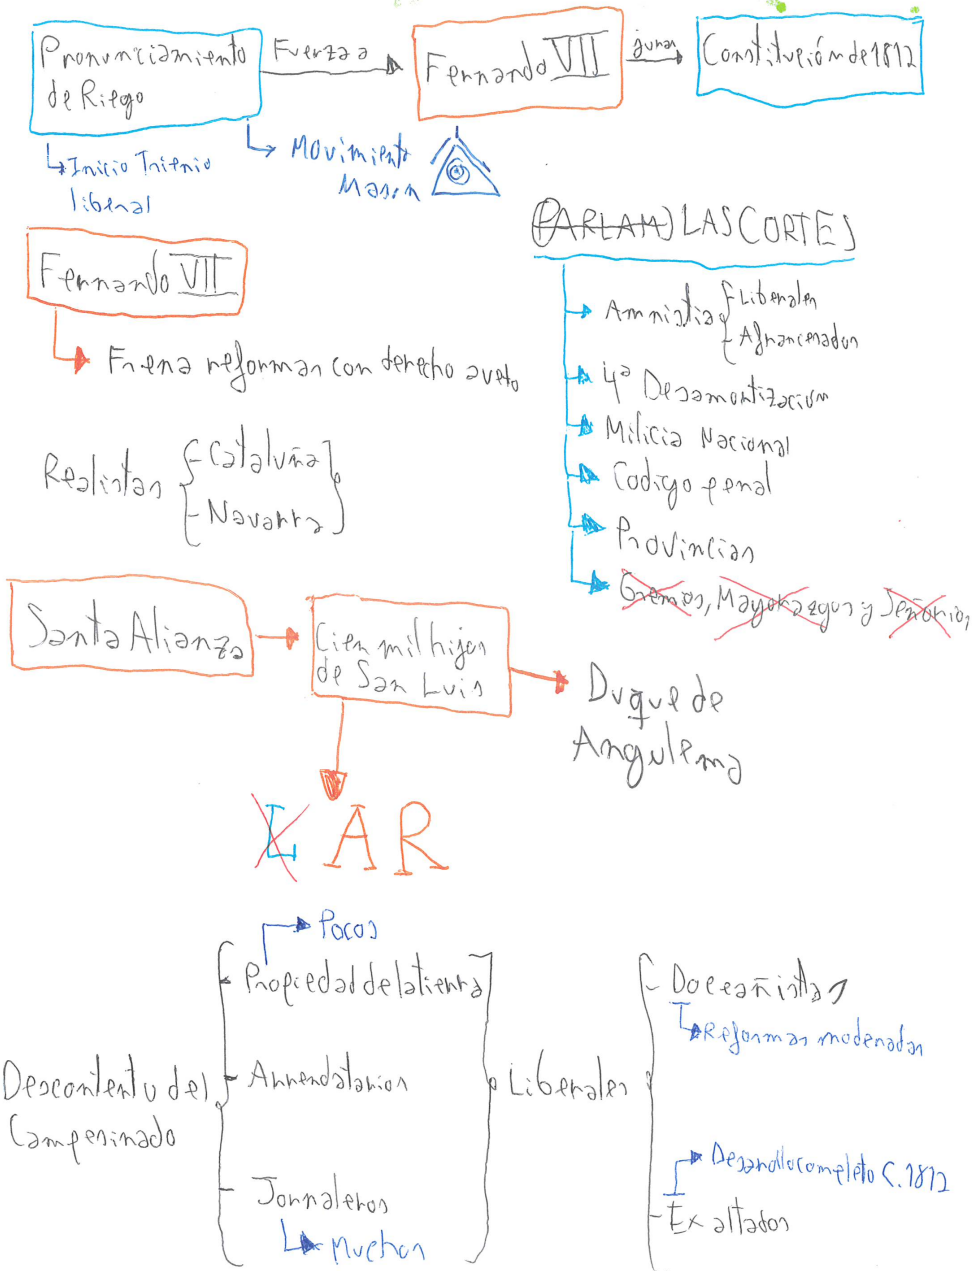 Pronunciamiento
de Riego
Fuerza a
Fernando VII
jurar
Constitución de 1812
Inicio Trienio
liberal
Movimiento
Mason
(PARLAM) LAS CORTES
Fernando VII
Frena reformas con derecho a veto
Amnistia
- Liberales
- Afrancesados
4ª Desamortización
Milicia Nacional
Codigo penal
Provincias
Gremios, Mayorazgos y Señorios
Realistas
- Cataluña
- Navarra
Santa Alianza
Cien mil hijos
de San Luis
Duque de
Angulema
L AR
Pocos
Descontento del
Campesinado
- Propiedad de la tierra
- Arrendatarios
- Jornaleros
Muchos
Liberales
- Doceañistas
Reformas moderadas
Desarrollo completo C. 1812
- Exaltados